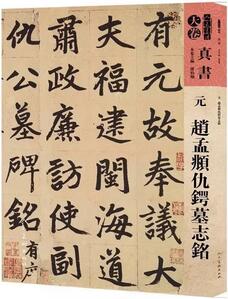 大卷
真書
元
趙孟頫仇鍔墓志銘
有元故奉議大
夫福建閩海道
肅政廉訪使副
仇公墓碑銘 有